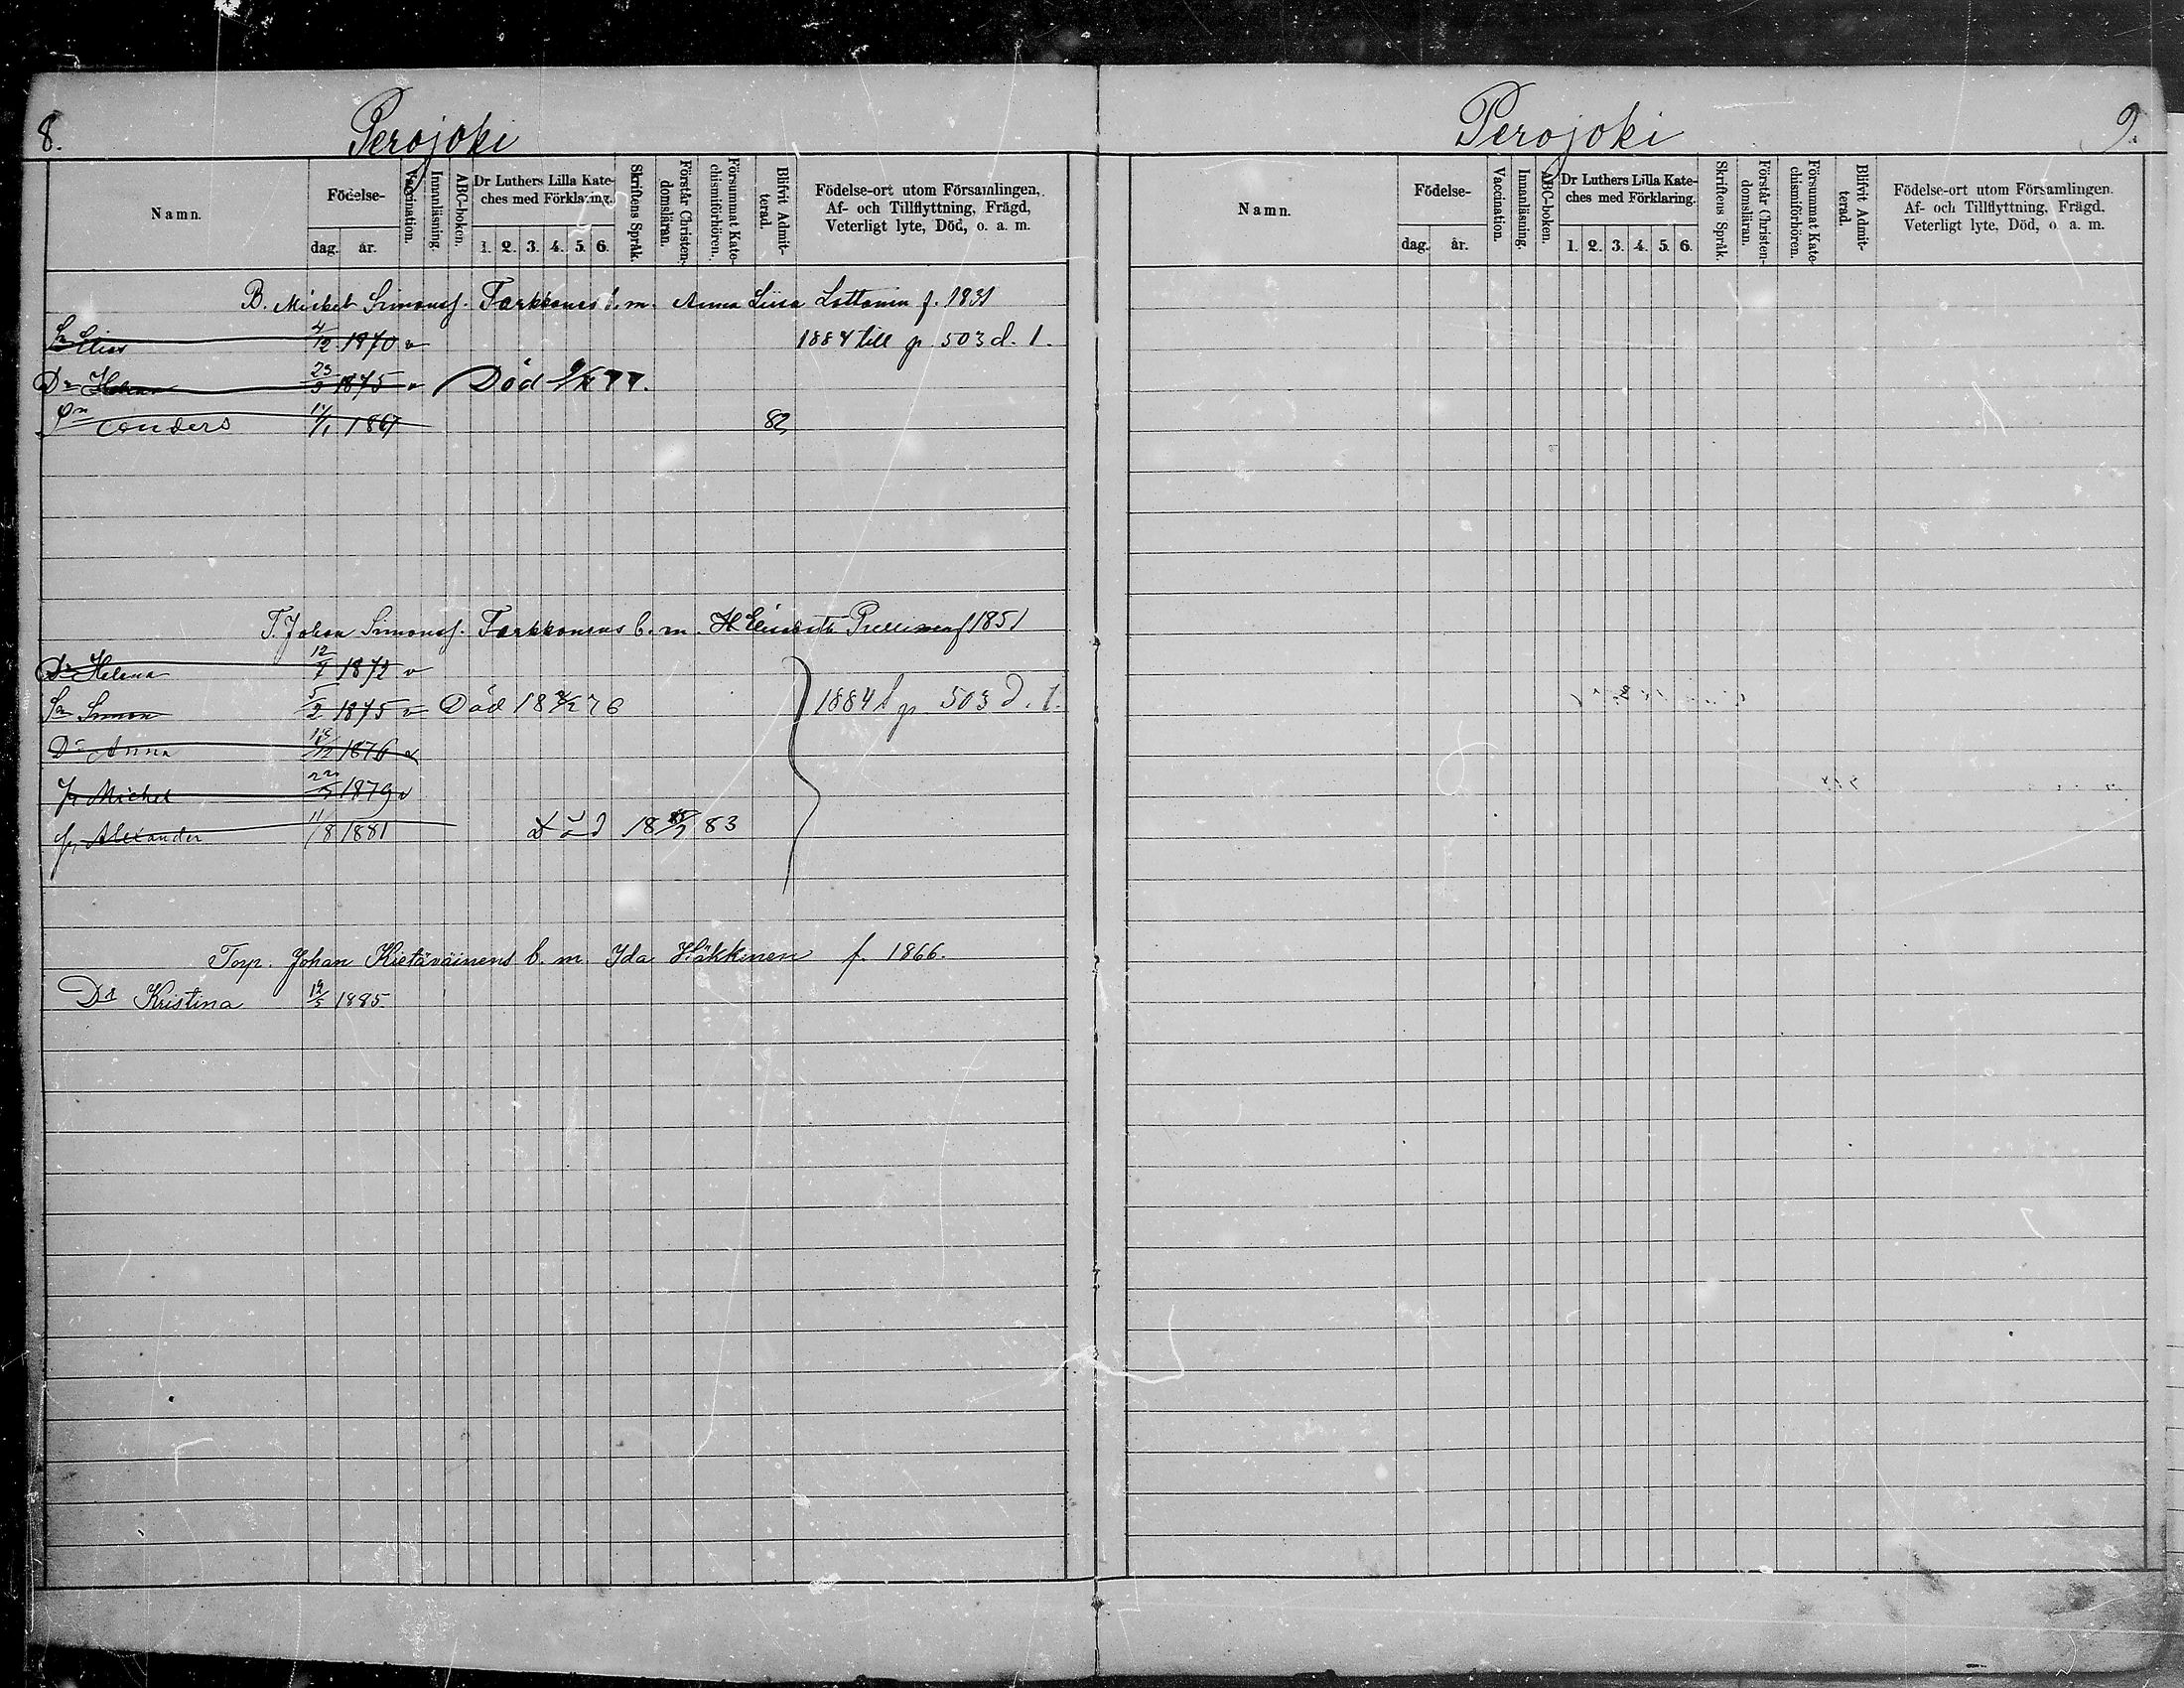 8.
Perojoki
Namn.
Födelse-
dag. år.
Vaccination.
Innanläsning.
ABC-boken.
Dr Luthers Lilla Kate-
ches med Förklaring.
1. 2. 3. 4. 5. 6.
Skriftens Språk.
Förstår Christen-
domsläran.
Försummat Kate-
chismiförhören.
Blifvit Admit-
terad.
Födelse-ort utom Församlingen,
Af- och Tillflyttning, Frägd,
Veterligt lyte, Död, o. a. m.
B. Michel Simonsf. Tarkkanens b. m. Anna Liisa f. 1831
Sn Elias 4/12 1870 v 1884 till p. 503 d. 1.
Dr 23/9 1875 v Död 77.
Sn Anders 11/1 82
T. Johan Simonsf. Tarkkanens b. m. H Elisabeth f 1851
Dr Helena 12/7 1872 v
Sn Simon 5/2 1875 v Död 18 76
Dr Anna 1876 v
Sn Michel 1879 v
1884 t p 503 d. 1.
Sn Alexander 11/8 1881 Död 18 83
Torp. Johan Kietäväinens b. m. Ida Häkkinen f. 1866.
Dr Kristina 12/5 1885.
Perojoki
9.
Namn.
Födelse-
dag. år.
Vaccination.
Innanläsning.
ABC-boken.
Dr Luthers Lilla Kate-
ches med Förklaring.
1. 2. 3. 4. 5. 6.
Skriftens Språk.
Förstår Christen-
domsläran.
Försummat Kate-
chismiförhören.
Blifvit Admit-
terad.
Födelse-ort utom Församlingen.
Af- och Tillflyttning, Frägd,
Veterligt lyte, Död, o. a. m.